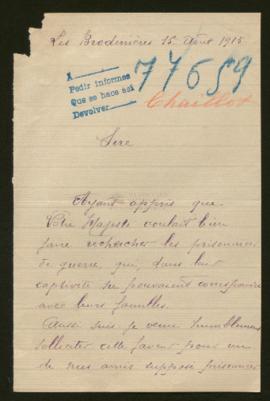 Les Brodinières 15 Août 1915
A
Pedir informes
Que se hace así
Devolver
77659
Chaillot
Sire
Ayant appris que
Votre Majesté voulait bien
faire rechercher les prisonniers
de guerre, qui, dans leur
captivité ne pouvaient correspondre
avec leurs familles.
Aussi suis je venu humblement
solliciter cette faveur pour un
de mes amis supposé prisonnier